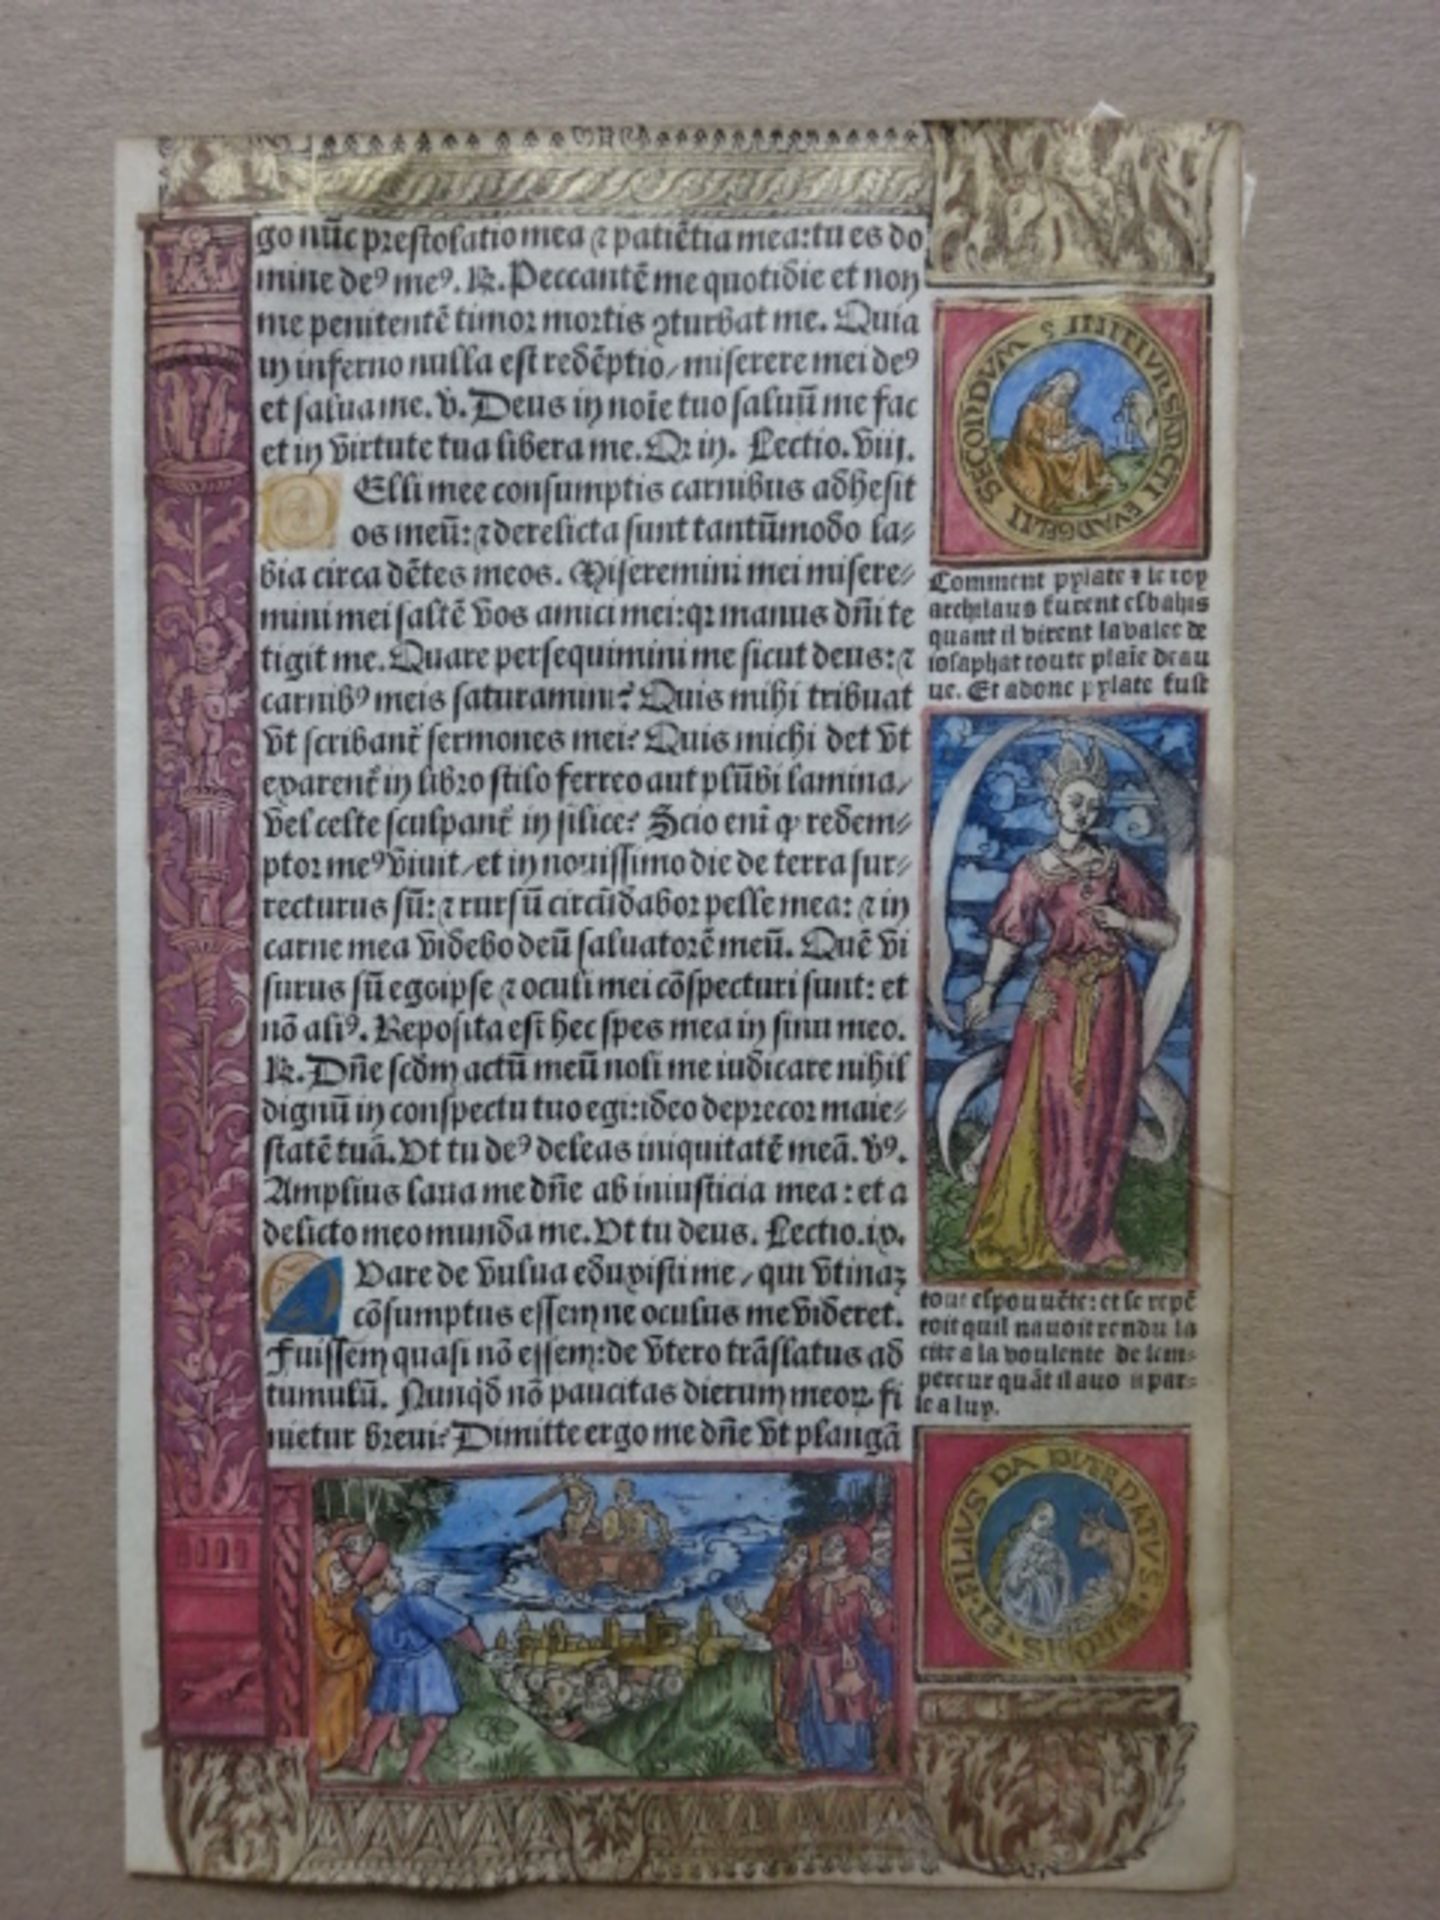 go nūc prestolatio mea ⁊ patiētia mea: tu es do
mine deꝰ meꝰ. ℟. Peccantē me quotidie et non
me penitentē timor mortis ꝯturbat me. Quia
in inferno nulla est redēptio / miserere mei deꝰ
et salua me. v̄. Deus in noīe tuo saluū me fac
et in virtute tua libera me. Qr in. Lectio. viij.
Elli mee consumptis carnibus adhesit
os meū: ⁊ derelicta sunt tantūmodo la⸗
bia circa dētes meos. Miseremini mei misere⸗
mini mei saltē vos amici mei: qr manus dn̄i te
tigit me. Quare persequimini me sicut deus: ⁊
carnibꝰ meis saturamini? Quis mihi tribuat
vt scribant̄ sermones mei? Quis michi det vt
exarent̄ in libro stilo ferreo aut plūbi lamina /
vel celte sculpant̄ in silice? Scio enī ꝙ redem⸗
ptor meꝰ viuit / et in nouissimo die de terra sur⸗
recturus sū: ⁊ rursū circūdabor pelle mea: ⁊ in
carne mea videbo deū saluatorē meū. Quē vi
surus sū ego ipse ⁊ oculi mei cōspecturi sunt: et
nō aliꝰ. Reposita est hec spes mea in sinu meo.
℟. Dn̄e scdm actū meū noli me iudicare nihil
dignū in conspectu tuo egi: ideo deprecor maie⸗
statē tuā. Vt tu deꝰ deleas iniquitatē meā. vꝰ.
Amplius laua me dn̄e ab iniusticia mea: et a
delicto meo munda me. Vt tu deus. Lectio. ix.
Q Vare de vulua eduxisti me / qui vtinaz
cōsumptus essem ne oculus me videret.
Fuissem quasi nō essem: de vtero trāslatus ad
tumulū. Nunqd̄ nō paucitas dierum meoꝝ fi
nietur breui? Dimitte ergo me dn̄e vt plangā
INITIVM SANCTI EVANGELII SECONDVM
Comment pylate ⁊ le roy
archilaus furent esbahis
quant il virent la valee de
iosaphat toute plaīe deau
ue. Et adonc pylate fust
tout espouuēte: et se repē
toit quil nauoit rendu la
cite a la voulente de lem⸗
pereur quāt il auoit par⸗
le a luy.
PVER NATVS NOBIS ET FILIVS DA